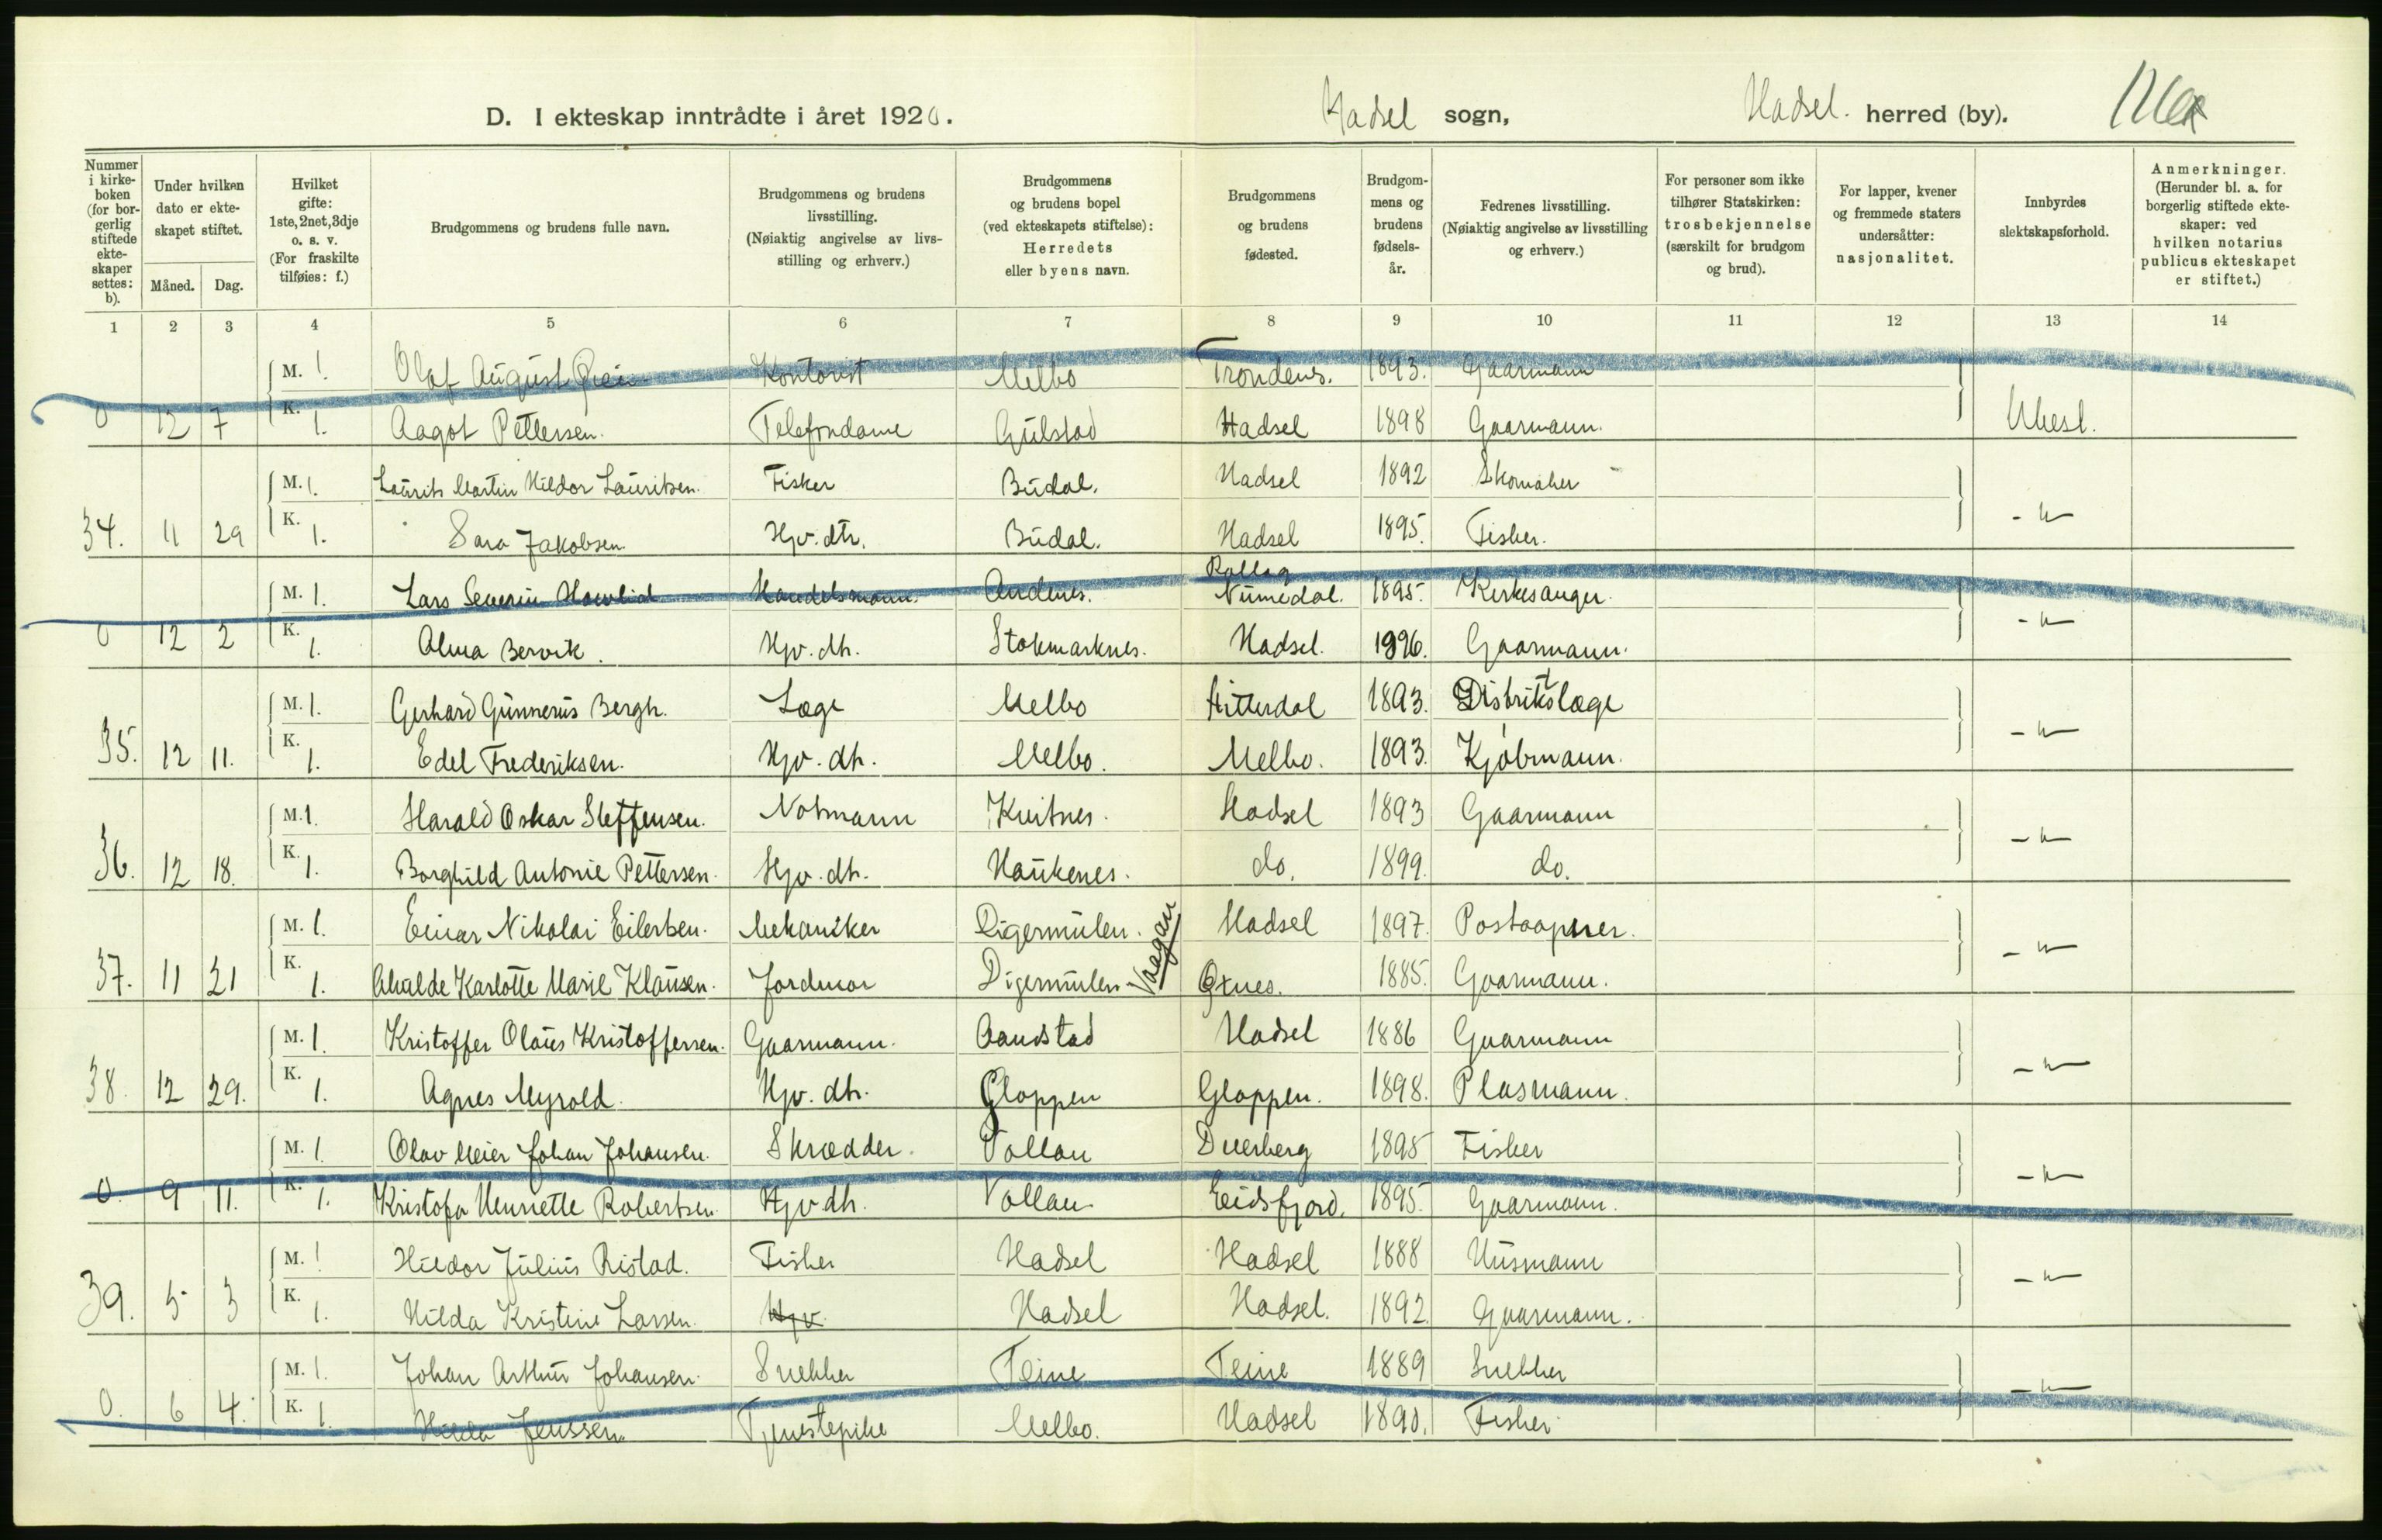 D. I ekteskap inntrådte i året 1920. Hadsel sogn, Hadsel. herred (by).
Nummer i kirkeboken (for borgerlig stiftede ekteskaper settes: b).
Under hvilken dato er ekteskapet stiftet.
Måned. Dag.
Hvilket gifte: 1ste, 2net, 3dje o. s. v. (For fraskilte tilføies: f.)
Brudgommens og brudens fulle navn.
Brudgommens og brudens livsstilling. (Nøiaktig angivelse av livsstilling og erhverv.)
Brudgommens og brudens bopel (ved ekteskapets stiftelse): Herredets eller byens navn.
Brudgommens og brudens fødested.
Brudgommens og brudens fødselsår.
Fedrenes livsstilling. (Nøiaktig angivelse av livsstilling og erhverv.)
For personer som ikke tilhører Statskirken: trosbekjennelse (særskilt for brudgom og brud).
For lapper, kvener og fremmede staters undersåtter: nasjonalitet.
Innbyrdes slektskapsforhold.
Anmerkninger. (Herunder bl. a. for borgerlig stiftede ekteskaper: ved hvilken notarius publicus ekteskapet er stiftet.)
1 2 3 4 5 6 7 8 9 10 11 12 13 14
M. 1. Olaf August Kontorist Melbo Trondenes. 1893. Gaarmann
0 12 7 K. 1. Aagot Pettersen. Telefondame Gulstad Hadsel 1898 Gaarmann. Ubesl.
M. 1. Laurits Martin Hildor Lauritsen. Fisker Budal. Hadsel 1892 Skomaker
34. 11 29 K. 1. Sara Jakobsen. Hjv. dtr. Budal. Hadsel 1895. Fisker. - " -
M. 1. Lars Severin Handelsmann. Andenes. Rollag Numedal. 1895. Kirkesanger.
0 12 2 K. 1. Alma Bervik. Hjv. dtr. Stokmarknes. Hadsel. 1896. Gaarmann. - " -
M. 1. Gerhard Gunnerus Bergh. Læge Melbo Hitterdal 1893. Distriktslæge
35. 12 11. K. 1. Edel Frederiksen. Hjv. dtr. Melbo. Melbo. 1893. Kjøbmann. - " -
M. 1. Harald Oskar Steffensen. Notmann Kvitnes. Hadsel 1893 Gaarmann
36. 12 18. K. 1. Borghild Antonie Pettersen. Hjv. dtr. Haukenes. do. 1899. do. - " -
M. 1. Einar Nikolai Eilertsen. Mekaniker Digermulen. Vaagan Hadsel 1897. Postaapner.
37. 11 21 K. 1. Karlotte Marie Klausen. Jordmor Digermulen Øxnes. 1885. Gaarmann. - " -
M. 1. Kristoffer Olaus Kristoffersen. Gaarmann. Sandstad Hadsel 1886 Gaarmann
38. 12 29. K. 1. Agnes Myrold. Hjv. dtr. Gloppen Gloppen. 1898. Plasmann. - " -
M. 1. Olav Meier Johan Johansen. Skrædder. Vollan Dverberg 1895 Fisker
0. 9 11. K. 1. Kristofa Henriette Robertsen. Hjv dtr. Vollan Eidsfjord. 1895. Gaarmann. - " -
M. 1 Hildor Julius Ristad. Fisker Hadsel Hadsel 1888 Husmann
39. 5 3 K. 1. Hilda Kristine Larsen. Hjv. Hadsel Hadsel. 1892. Gaarmann. - " -
M. 1. Johan Arthur Johansen. Snekker Teine Teine 1889 Snekker
0. 6 4. K. 1. Hilda Jenssen. Tjenestepike Melbo. Hadsel 1890. Fisker. - " -